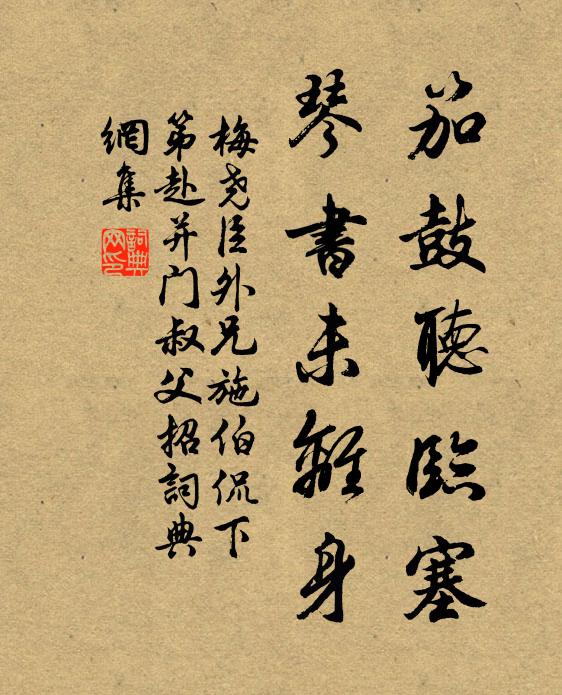 笳鼓聽臨塞
琴書未離身
梅尧臣外兄施伯侃下
第赴并门叔父招詞典
網集
詞典
网印